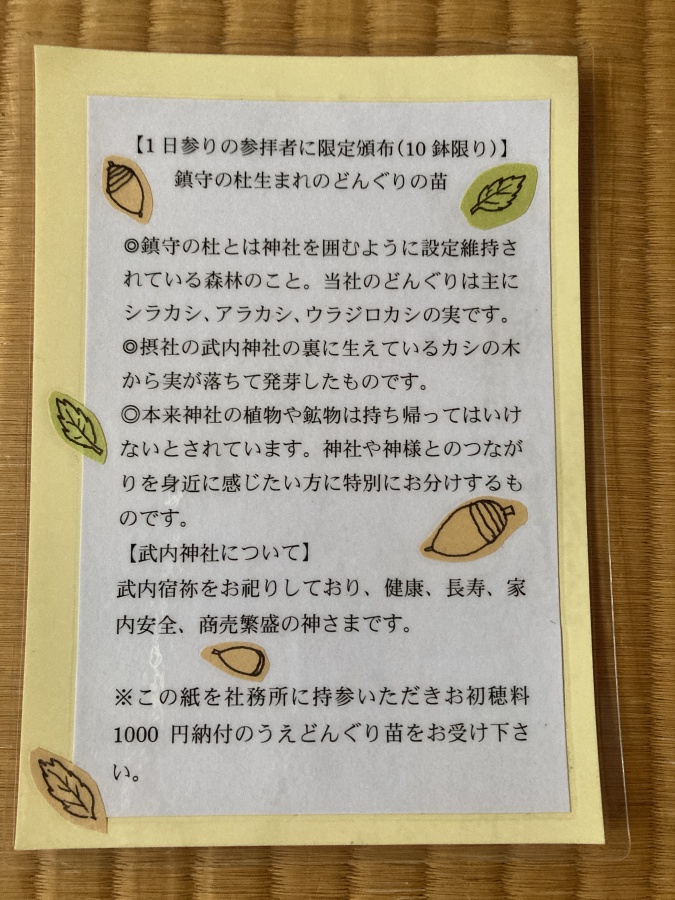 【1日参りの参拝者に限定頒布(10鉢限り)】
鎮守の杜生まれのどんぐりの苗
◎鎮守の杜とは神社を囲むように設定維持さ
れている森林のこと。当社のどんぐりは主に
シラカシ、アラカシ、ウラジロカシの実です。
◎摂社の武内神社の裏に生えているカシの木
から実が落ちて発芽したものです。
◎本来神社の植物や鉱物は持ち帰ってはいけ
ないとされています。神社や神様とのつなが
りを身近に感じたい方に特別にお分けするも
のです。
【武内神社について】
武内宿祢をお祀りしており、健康、長寿、家
内安全、商売繁盛の神さまです。
※この紙を社務所に持参いただきお初穂料
1000 円納付のうえどんぐり苗をお受け下さ
い。